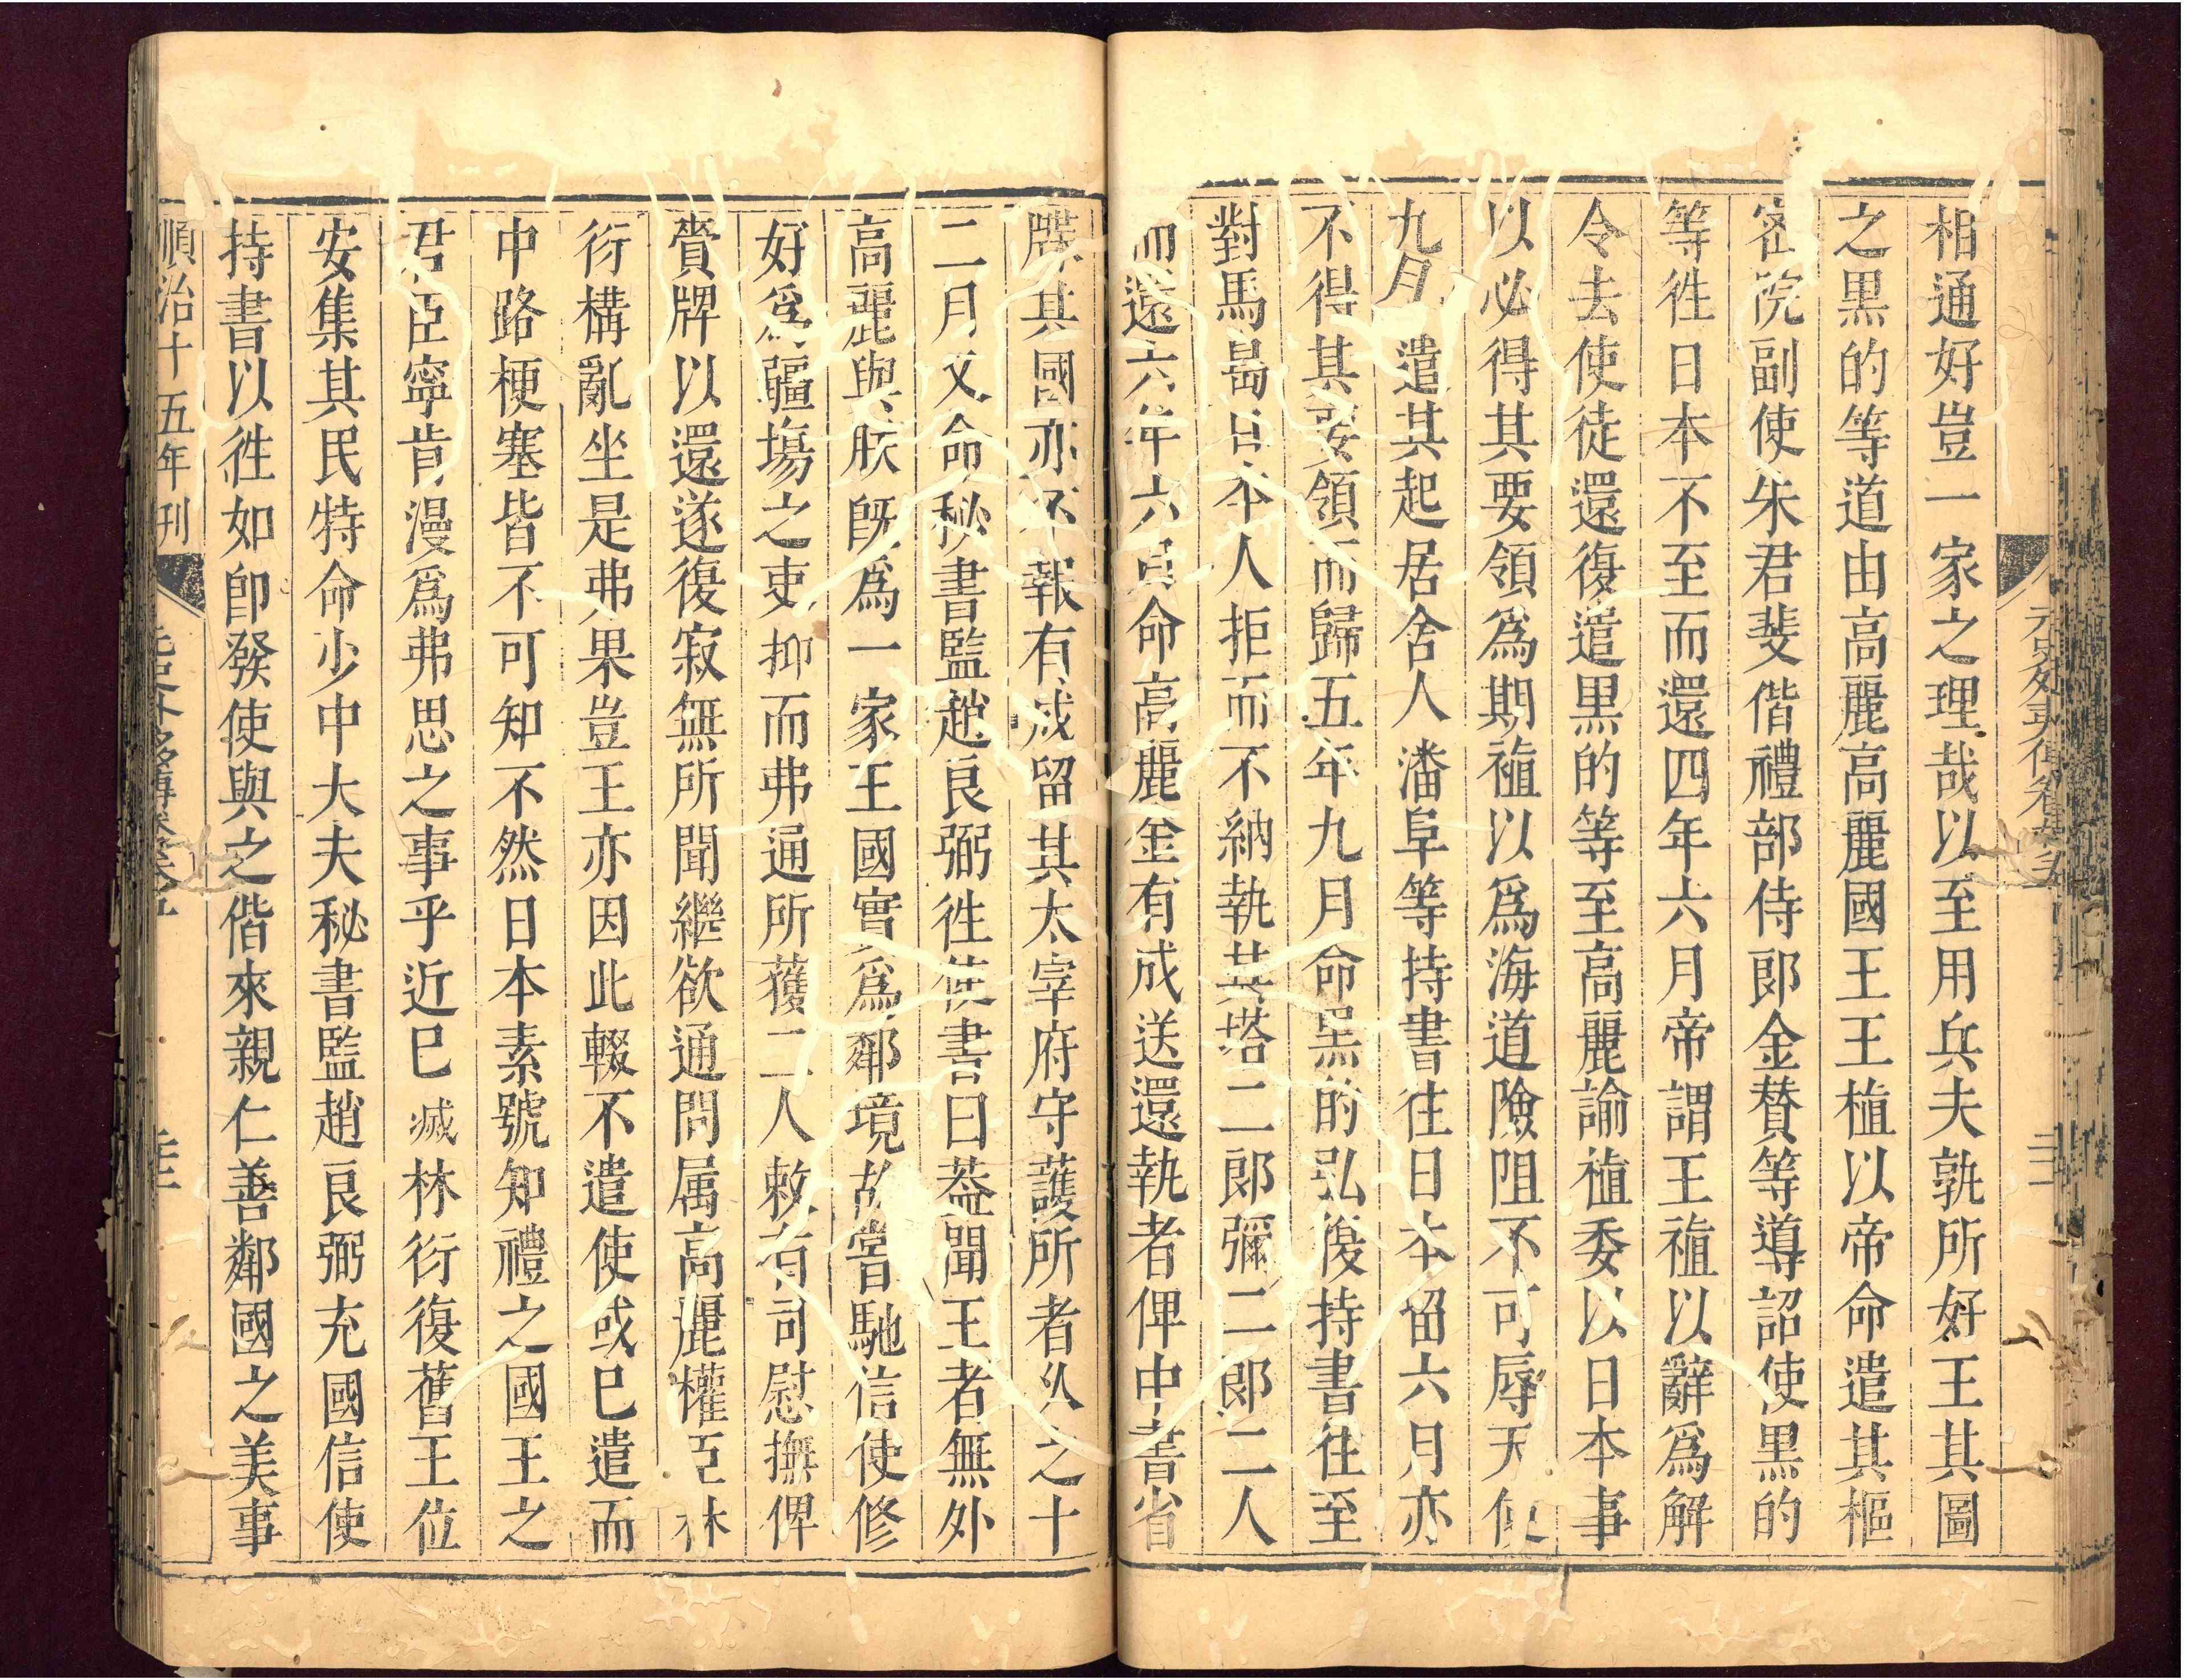 相通好豈一家之理哉以至用兵夫孰所好王其圖
之黒的等道由高麗高麗國王王植以帝命遣其樞
宻院副使宋君斐偕禮部侍郎金賛等導詔使黒的
等徃日本不至而還四年六月帝謂王禃以辭爲解
令去使徒還復遣黒的等至高麗諭禃委以日本事
以必得其要領爲期禃以爲海道險阻不可辱天使
九月遣其起居舍人潘阜等持書往日本留六月亦
不得其要領而歸五年九月命黒的弘復持書往至
對馬島日本人拒而不納執其塔二郎彌二郎二人
而還六年六月命高麗金有成送還執者俾中書省
牒其國亦不報有成留其太宰府守護所者久之十
二月又命秘書監趙良弼徃使書曰葢聞王者無外
高麗與朕既爲一家王國實爲鄰境故嘗馳信使修
好爲疆塲之吏抑而弗通所獲二人敕有司慰撫俾
賫牌以還遂復寂無所聞繼欲通問属高麗權臣林
衍構亂坐是弗果豈王亦因此輟不遣使或已遣而
中路梗塞皆不可知不然日本素號知禮之國王之
君臣寧肯漫爲弗思之事乎近已滅林衍復舊王位
安集其民特命少中大夫秘書監趙良弼充國信使
持書以徃如卽發使與之偕來親仁善鄰國之美事
順治十五年刊